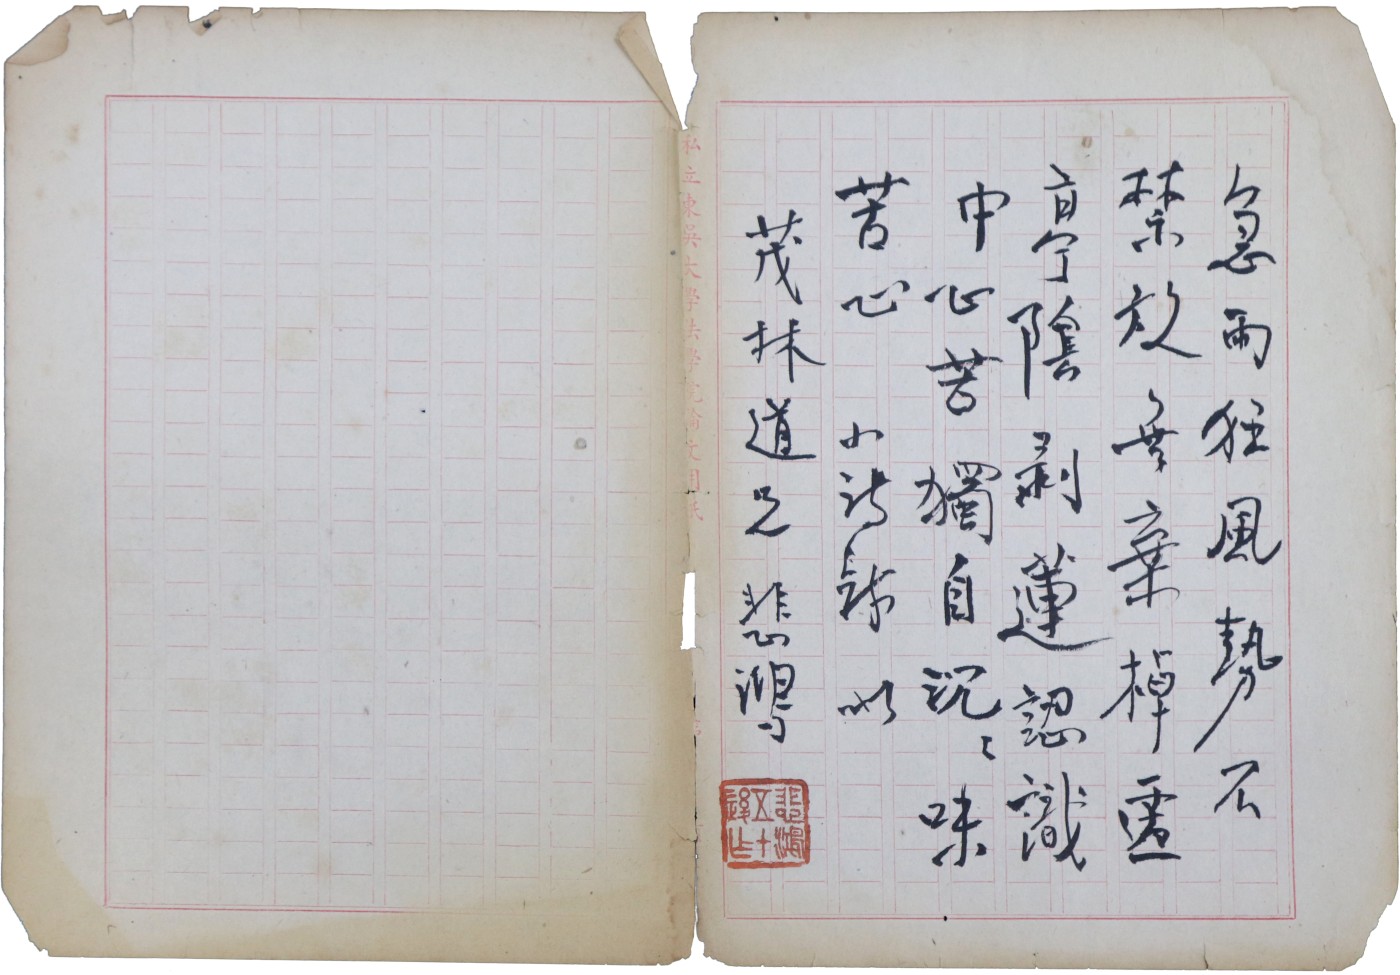 急雨狂風勢不
禁放舟棄棹遷
亭陰剥蓮認識
中心苦獨自沉〻味
苦心 小詩録以
茂林道兄 悲鴻
悲鴻
五十
私立東吳大學法學院論文用紙